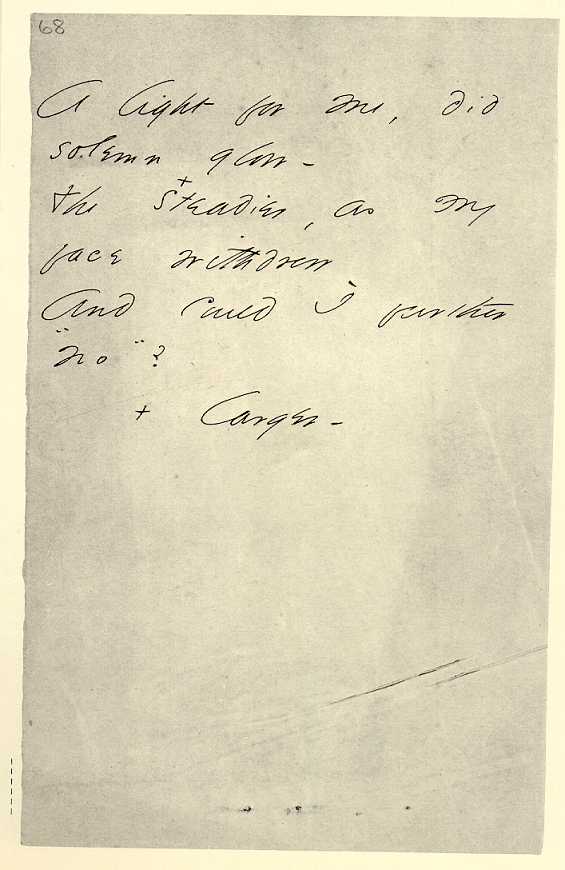 68
A light for me, did
solemn glow -
The +steadier, as my
face withdrew
And could I further
"no"?
+ Larger -